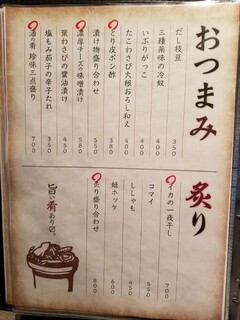 おつまみ
だし枝豆 350
三種薬味の冷奴 400
いぶりがっこ 400
たこわさび大根おろし和え 400
とり皮ポン酢 380
漬け物盛り合わせ 550
濃厚チーズの味噌漬け 580
葉わさびの醤油漬け 450
塩もみ茄子の辛子たれ 350
酒の肴 珍味三点盛り 700
炙り
イカの一夜干し 700
コマイ 550
ししゃも 450
鮭ホッケ 600
炙り盛り合わせ 800
旨い肴あり〼。